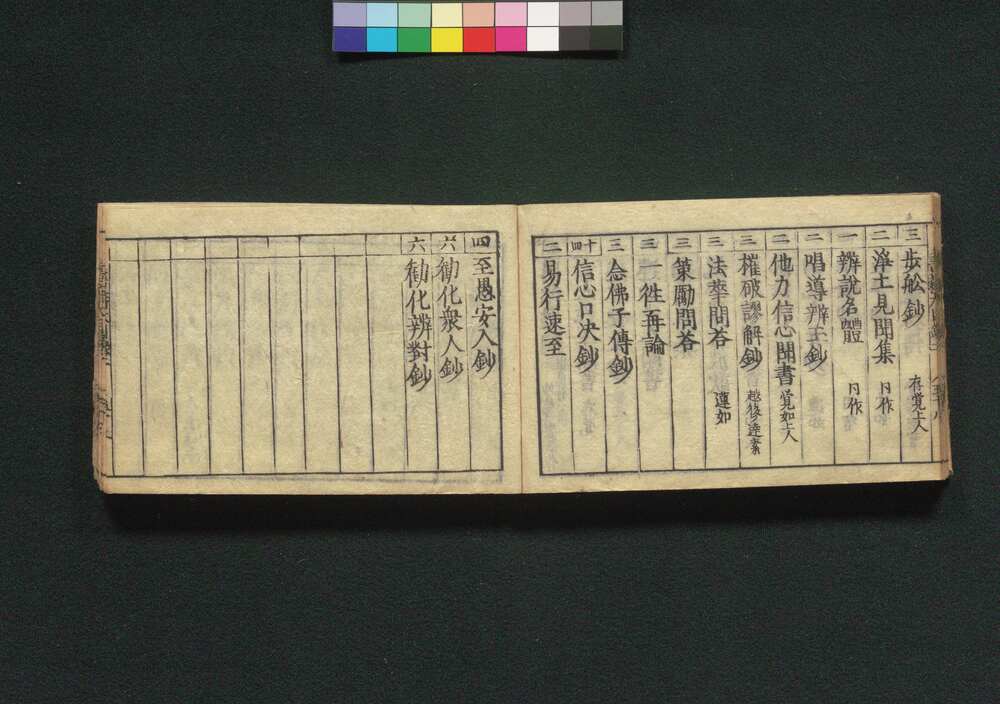 三 歩舩鈔 存覚上人
二 浄土見聞集 同作
一 辨説名體 同作
二 唱導辨玉鈔
二 他力信心聞書 覚如上人
三 権破謬解鈔 越後逹素
三 法華問答 蓮如
三 策励問答
三 二徃再論
三 念佛子傳鈔
十四 信心口決鈔
二 易行速至
四 至愚安入鈔
六 勧化衆人鈔
六 勧化辨對鈔